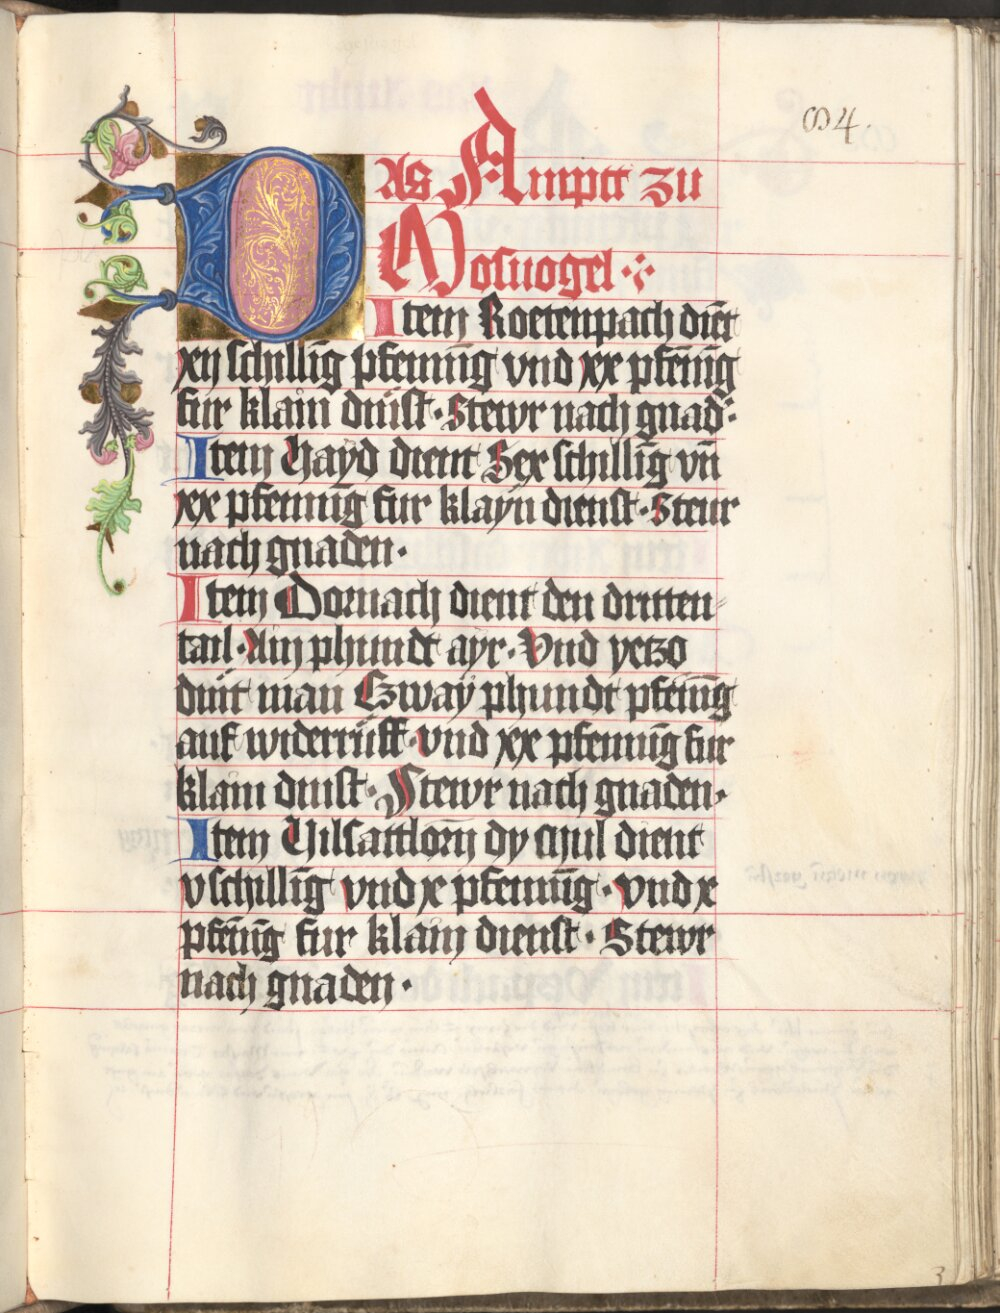 4.
Das Amptt zu
Mosuogel
Item Roetenpach diēt
xij schilling pfenning vnd xx pfēnig
fur klain dinst · Stewr nach gnad
Item Hayd dient Sex schilling vñ
xx pfenning fur klayn dienst · Steur
nach gnaden ·
Item Dornach dient den dritten
tail · Ain phundt ayr · Vnd yetzo
dint man Czway phundt pfening
auf widerrüff · vnd xx pfenning fur
klain dinst · Stewr nach gnaden ·
Item Vilsattlorn dy chul dient
v schilling vnd x pfenning · vnd x
pfening fur klain dienst · Stewr
nach gnaden ·
3